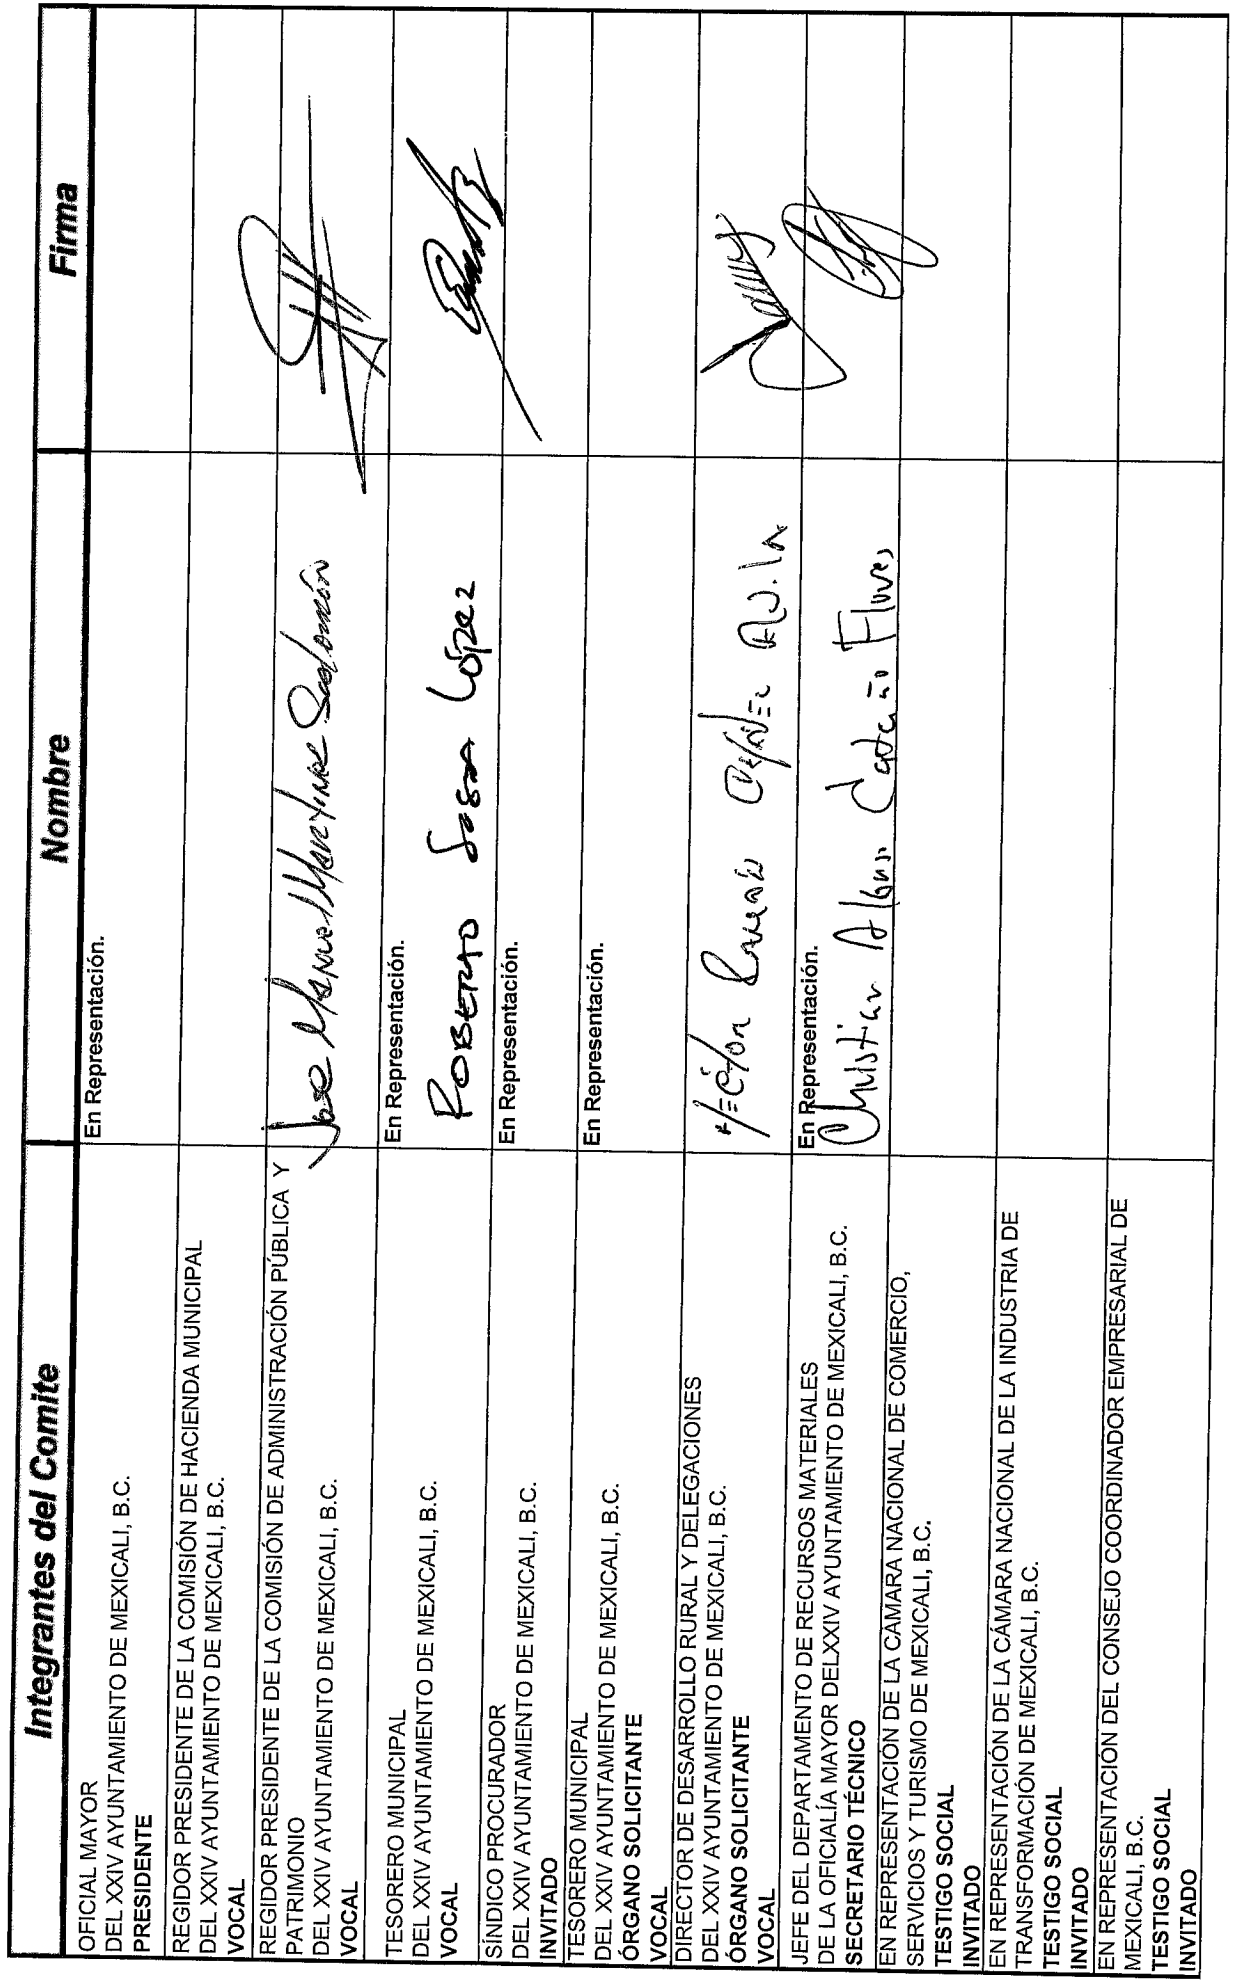 Integrantes del Comite Nombre Firma
OFICIAL MAYOR
DEL XXIV AYUNTAMIENTO DE MEXICALI, B.C.
PRESIDENTE
En Representación.
REGIDOR PRESIDENTE DE LA COMISIÓN DE HACIENDA MUNICIPAL
DEL XXIV AYUNTAMIENTO DE MEXICALI, B.C.
VOCAL
REGIDOR PRESIDENTE DE LA COMISIÓN DE ADMINISTRACIÓN PÚBLICA Y
PATRIMONIO
DEL XXIV AYUNTAMIENTO DE MEXICALI, B.C.
VOCAL
Jose Manuel Martinez Salomón
TESORERO MUNICIPAL
DEL XXIV AYUNTAMIENTO DE MEXICALI, B.C.
VOCAL
En Representación.
ROBERTO Sosa López
SÍNDICO PROCURADOR
DEL XXIV AYUNTAMIENTO DE MEXICALI, B.C.
INVITADO
En Representación.
TESORERO MUNICIPAL
DEL XXIV AYUNTAMIENTO DE MEXICALI, B.C.
ÓRGANO SOLICITANTE
VOCAL
En Representación.
DIRECTOR DE DESARROLLO RURAL Y DELEGACIONES
DEL XXIV AYUNTAMIENTO DE MEXICALI, B.C.
ÓRGANO SOLICITANTE
VOCAL
Héctor
JEFE DEL DEPARTAMENTO DE RECURSOS MATERIALES
DE LA OFICIALÍA MAYOR DELXXIV AYUNTAMIENTO DE MEXICALI, B.C.
SECRETARIO TÉCNICO
En Representación.
Christian Flores
EN REPRESENTACIÓN DE LA CÁMARA NACIONAL DE COMERCIO,
SERVICIOS Y TURISMO DE MEXICALI, B.C.
TESTIGO SOCIAL
INVITADO
EN REPRESENTACIÓN DE LA CÁMARA NACIONAL DE LA INDUSTRIA DE
TRANSFORMACIÓN DE MEXICALI, B.C.
TESTIGO SOCIAL
INVITADO
EN REPRESENTACIÓN DEL CONSEJO COORDINADOR EMPRESARIAL DE
MEXICALI, B.C.
TESTIGO SOCIAL
INVITADO